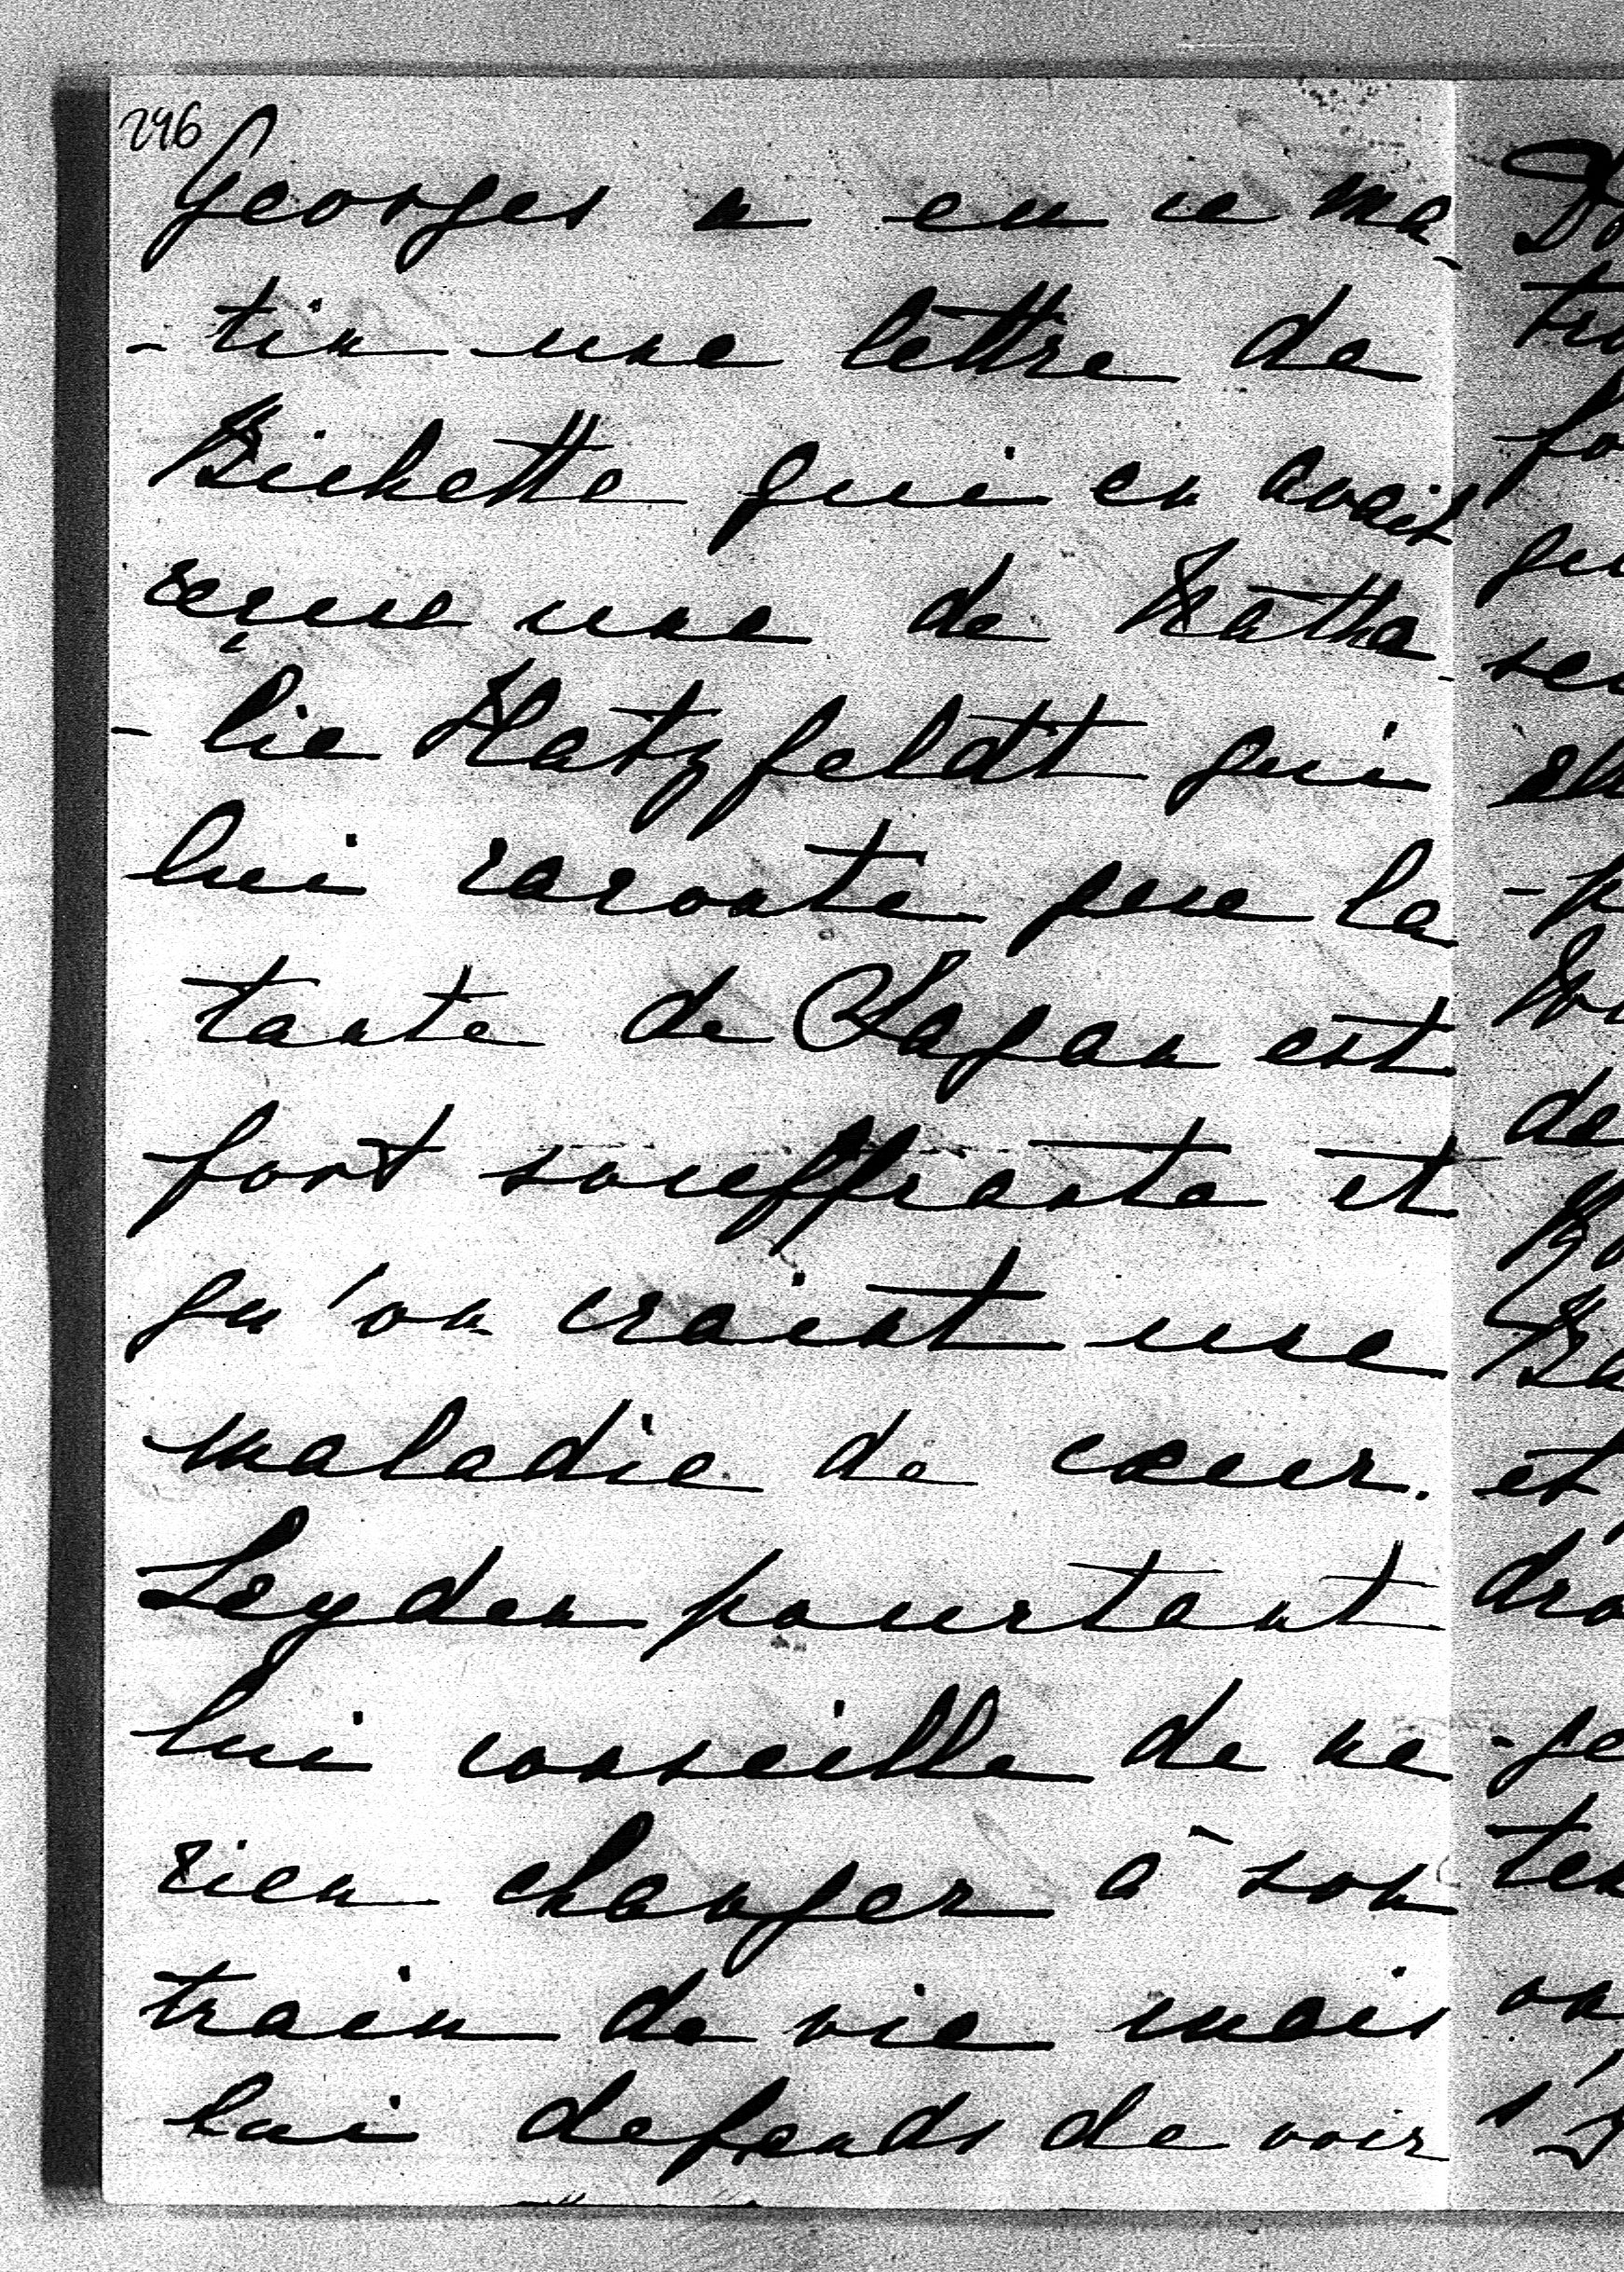 296
Georges a eu ce ma-
-tin une lettre de
Bichette qui en avait
reçue une de Natha-
-lie Hatzfeldt qui
lui raconte que la
tante de Sagan est
fort souffrante et
qu'on craint une
maladie de cœur.
Leyden pourtant
lui conseille de ne
rien changer à son
train de vie mais
lui defends de voir